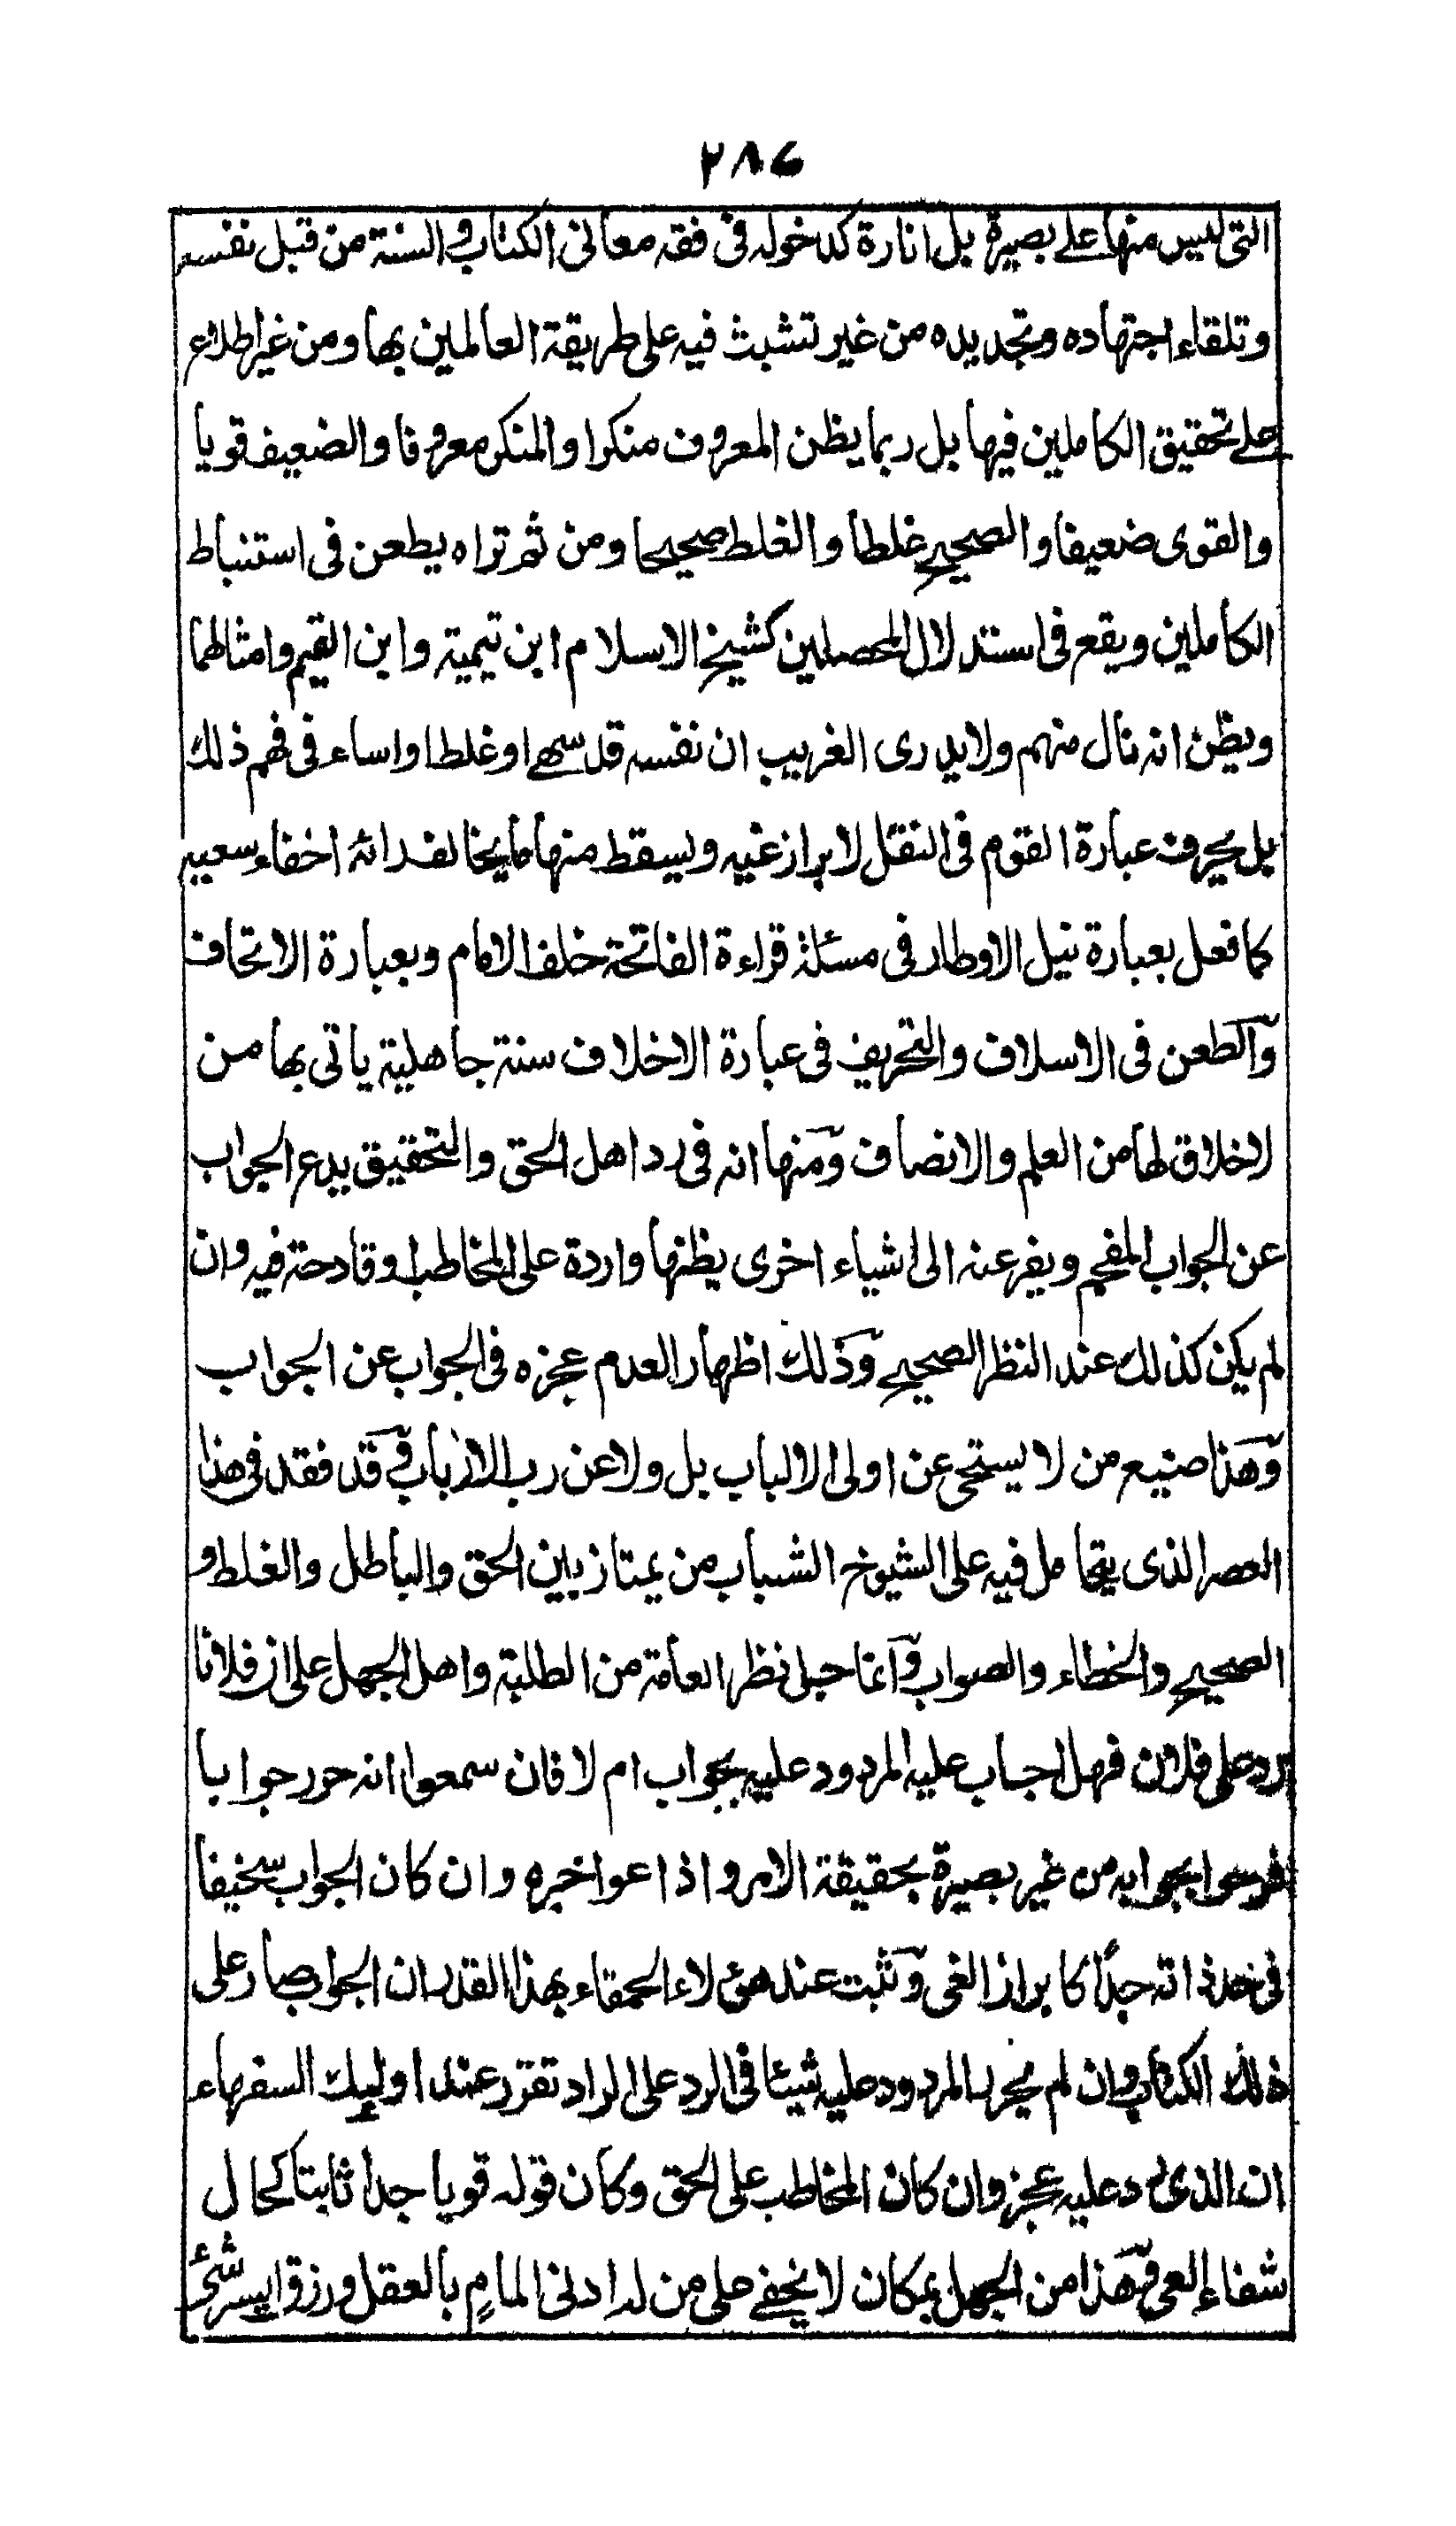 ٢٨٦
التى ليس منها على بصيرة بل انارة كدخوله فى فقه معانى الكتاب والسنة من قبل نفسه
وتلقاء اجتهاده وتجديده من غير تشبث فيه على طريقة العالمين بها ومن غير اطلاع
على تحقيق الكاملين فيها بل ربما يظن المعروف منكرا والمنكر معروفا والضعيف قويا
والقوى ضعيفا والصحيح غلطا والغلط صحيحا ومن ثم تراه يطعن فى استنباط
الكاملين ويقع فى استدلال المحصلين كشيخ الاسلام ابن تيمية وابن القيم وامثالهما
ويظن انه نال منهم ولا يدرى الغريب ان نفسه قد سهى او غلط او اساء فى فهم ذلك
بل يحرف عبارة القوم فى النقل لابراز غيه ويسقط منها ما يخالف رائه اخفاء سعيه
كما فعل بعبارة نيل الاوطار فى مسئلة قراءة الفاتحة خلف الامام وبعبارة الاتحاف
والطعن فى الاسلاف والتحريف فى عبارة الاخلاف سنة جاهلية ياتى بها من
لاخلاق لها من العلم والانصاف ومنها انه فى رد اهل الحق والتحقيق يدع الجواب
عن الجواب المفحم ويفر عنه الى اشياء اخرى يظنها واردة على المخاطب او قادحة فيه وان
لم يكن كذلك عند النظر الصحيح وذلك اظهار العدم عجزه فى الجواب عن الجواب
وهذا صنيع من لا يستحى عن اولى الالباب بل ولا عن رب الارباب وقد فقد فى هذا
العصر الذى يتحامل فيه على الشيوخ الشباب من يمتاز بين الحق والباطل والغلط و
الصحيح والخطاء والصواب وانما جل نظر العامة من الطلبة واهل الجهل على ان فلانا
يرد على فلان فهل اجاب عليه المردود عليه بجواب ام لا فان سمعوا انه حرر جوابا
فرحوا بجوابه من غير بصيرة بحقيقة الامر واذاعوا خبره وان كان الجواب سخيفا
فى حد ذاته جدًا كابراز الغى وثبت عند هؤلاء الحمقاء بهذا القدر ان الجواب صار على
ذلك الكتاب وان لم يحرر المردود عليه شيئا فى الرد على الراد تقرر عند اولئك السفهاء
ان الذى رد عليه عجز وان كان المخاطب على الحق وكان قوله قويا جدا ثابتا كحال
شفاء العى وهذا من الجهل بمكان لا يخفى على من له ادنى المام بالعقل ورزق ايسر شئ